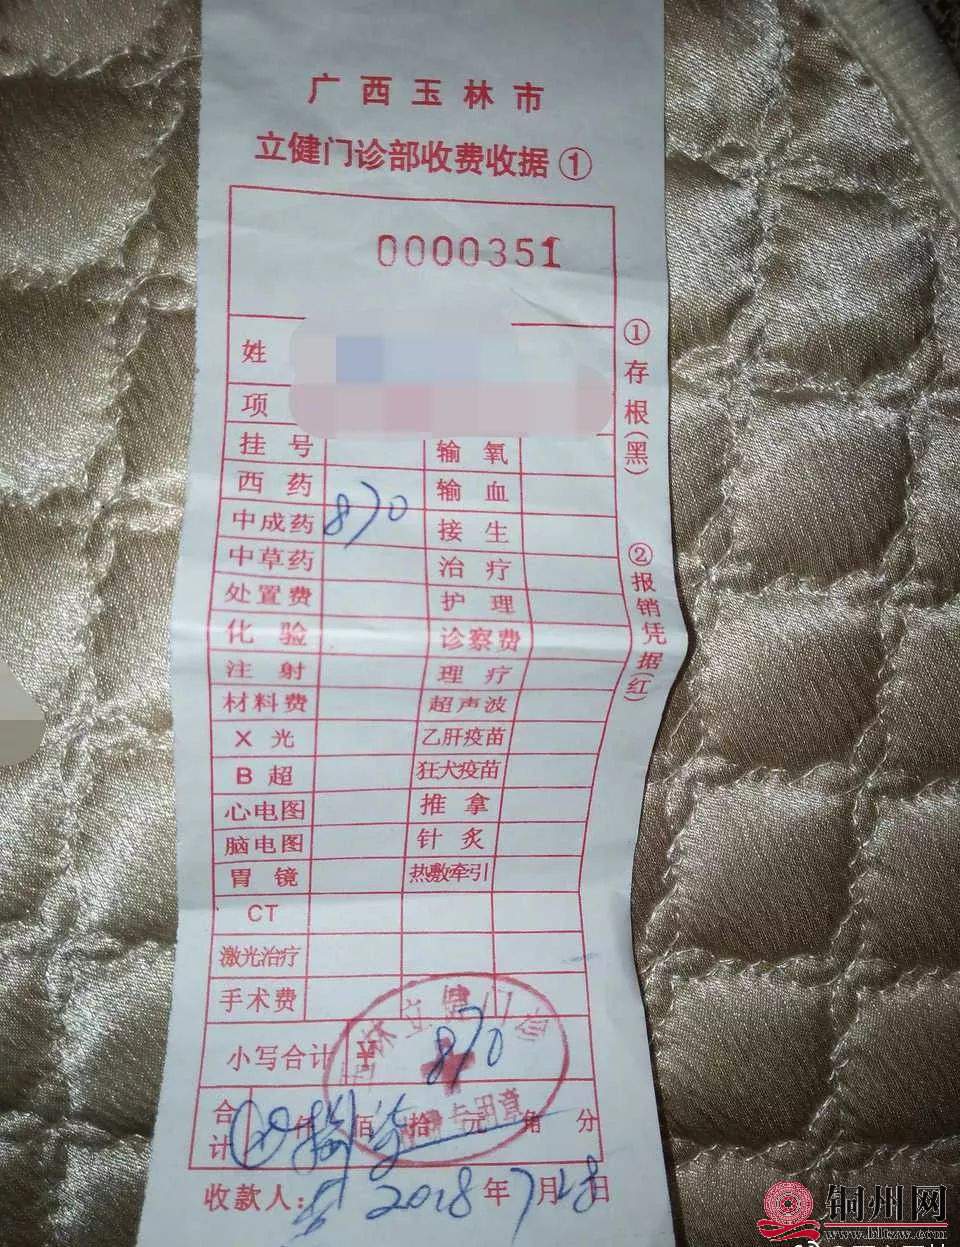 广西玉林市
立健门诊部收费收据①
0000351
姓
项
挂号 输氧
西药 输血
中成药 870 接生
中草药 治疗
处置费 护理
化验 诊察费
注射 理疗
材料费 超声波
X光 乙肝疫苗
B超 狂犬疫苗
心电图 推拿
脑电图 针灸
胃镜 热敷牵引
CT
激光治疗
手术费
小写合计 ¥ 870
合计 仟 百 拾 元 角 分
收款人: 2018年7月28日
①存根(黑)
②报销凭据(红)
玉林立健门诊
专用章
铜州网
www.bltzw.com